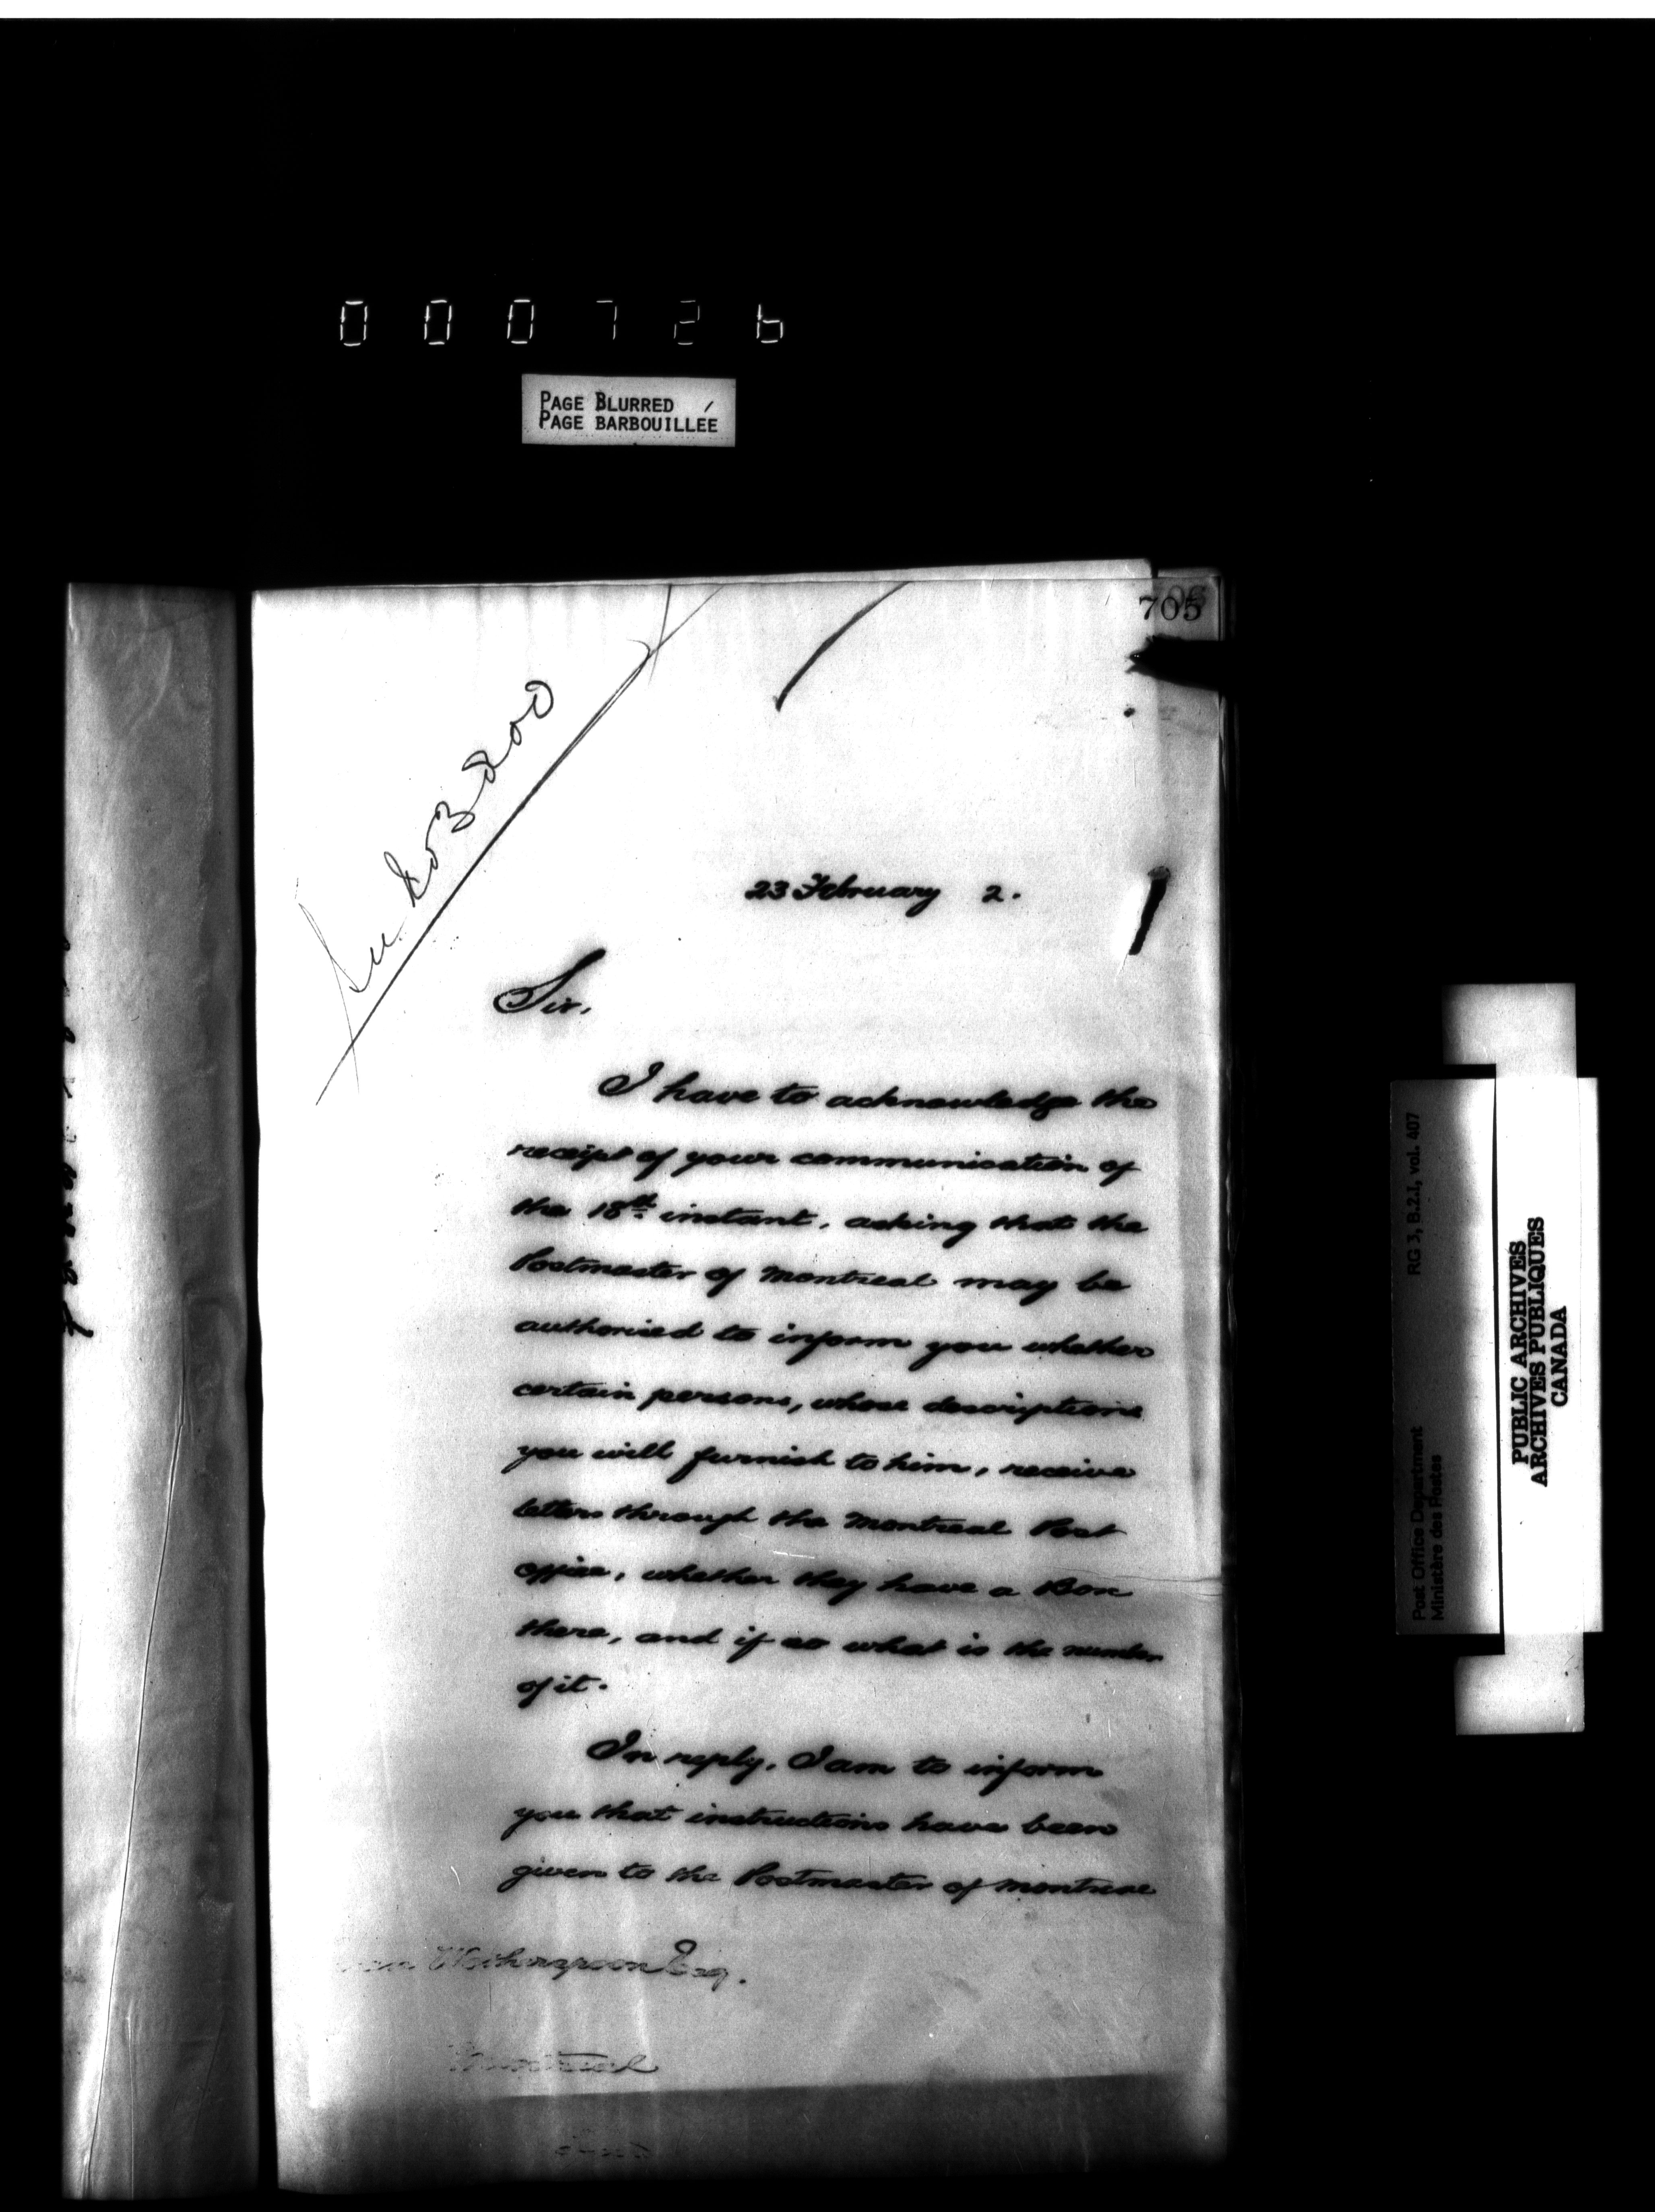 000726
PAGE BLURRED
PAGE BARBOUILLÉE
705
23 February 2.
Sir,
I have to acknowledge the
receipt of your communication of
the 18th instant, asking that the
Postmaster of Montreal may be
authorized to inform you whether
certain persons, whose descriptions
you will furnish to him, receive
letters through the Montreal Post
office, whether they have a Box
there, and if so what is the number
of it.
In reply, I am to inform
you that instructions have been
given to the Postmaster of Montreal
Witherspoon Esq.
Montreal
Post Office Department
Ministère des Postes
RG 3, B.2.1, vol. 407
PUBLIC ARCHIVES
ARCHIVES PUBLIQUES
CANADA